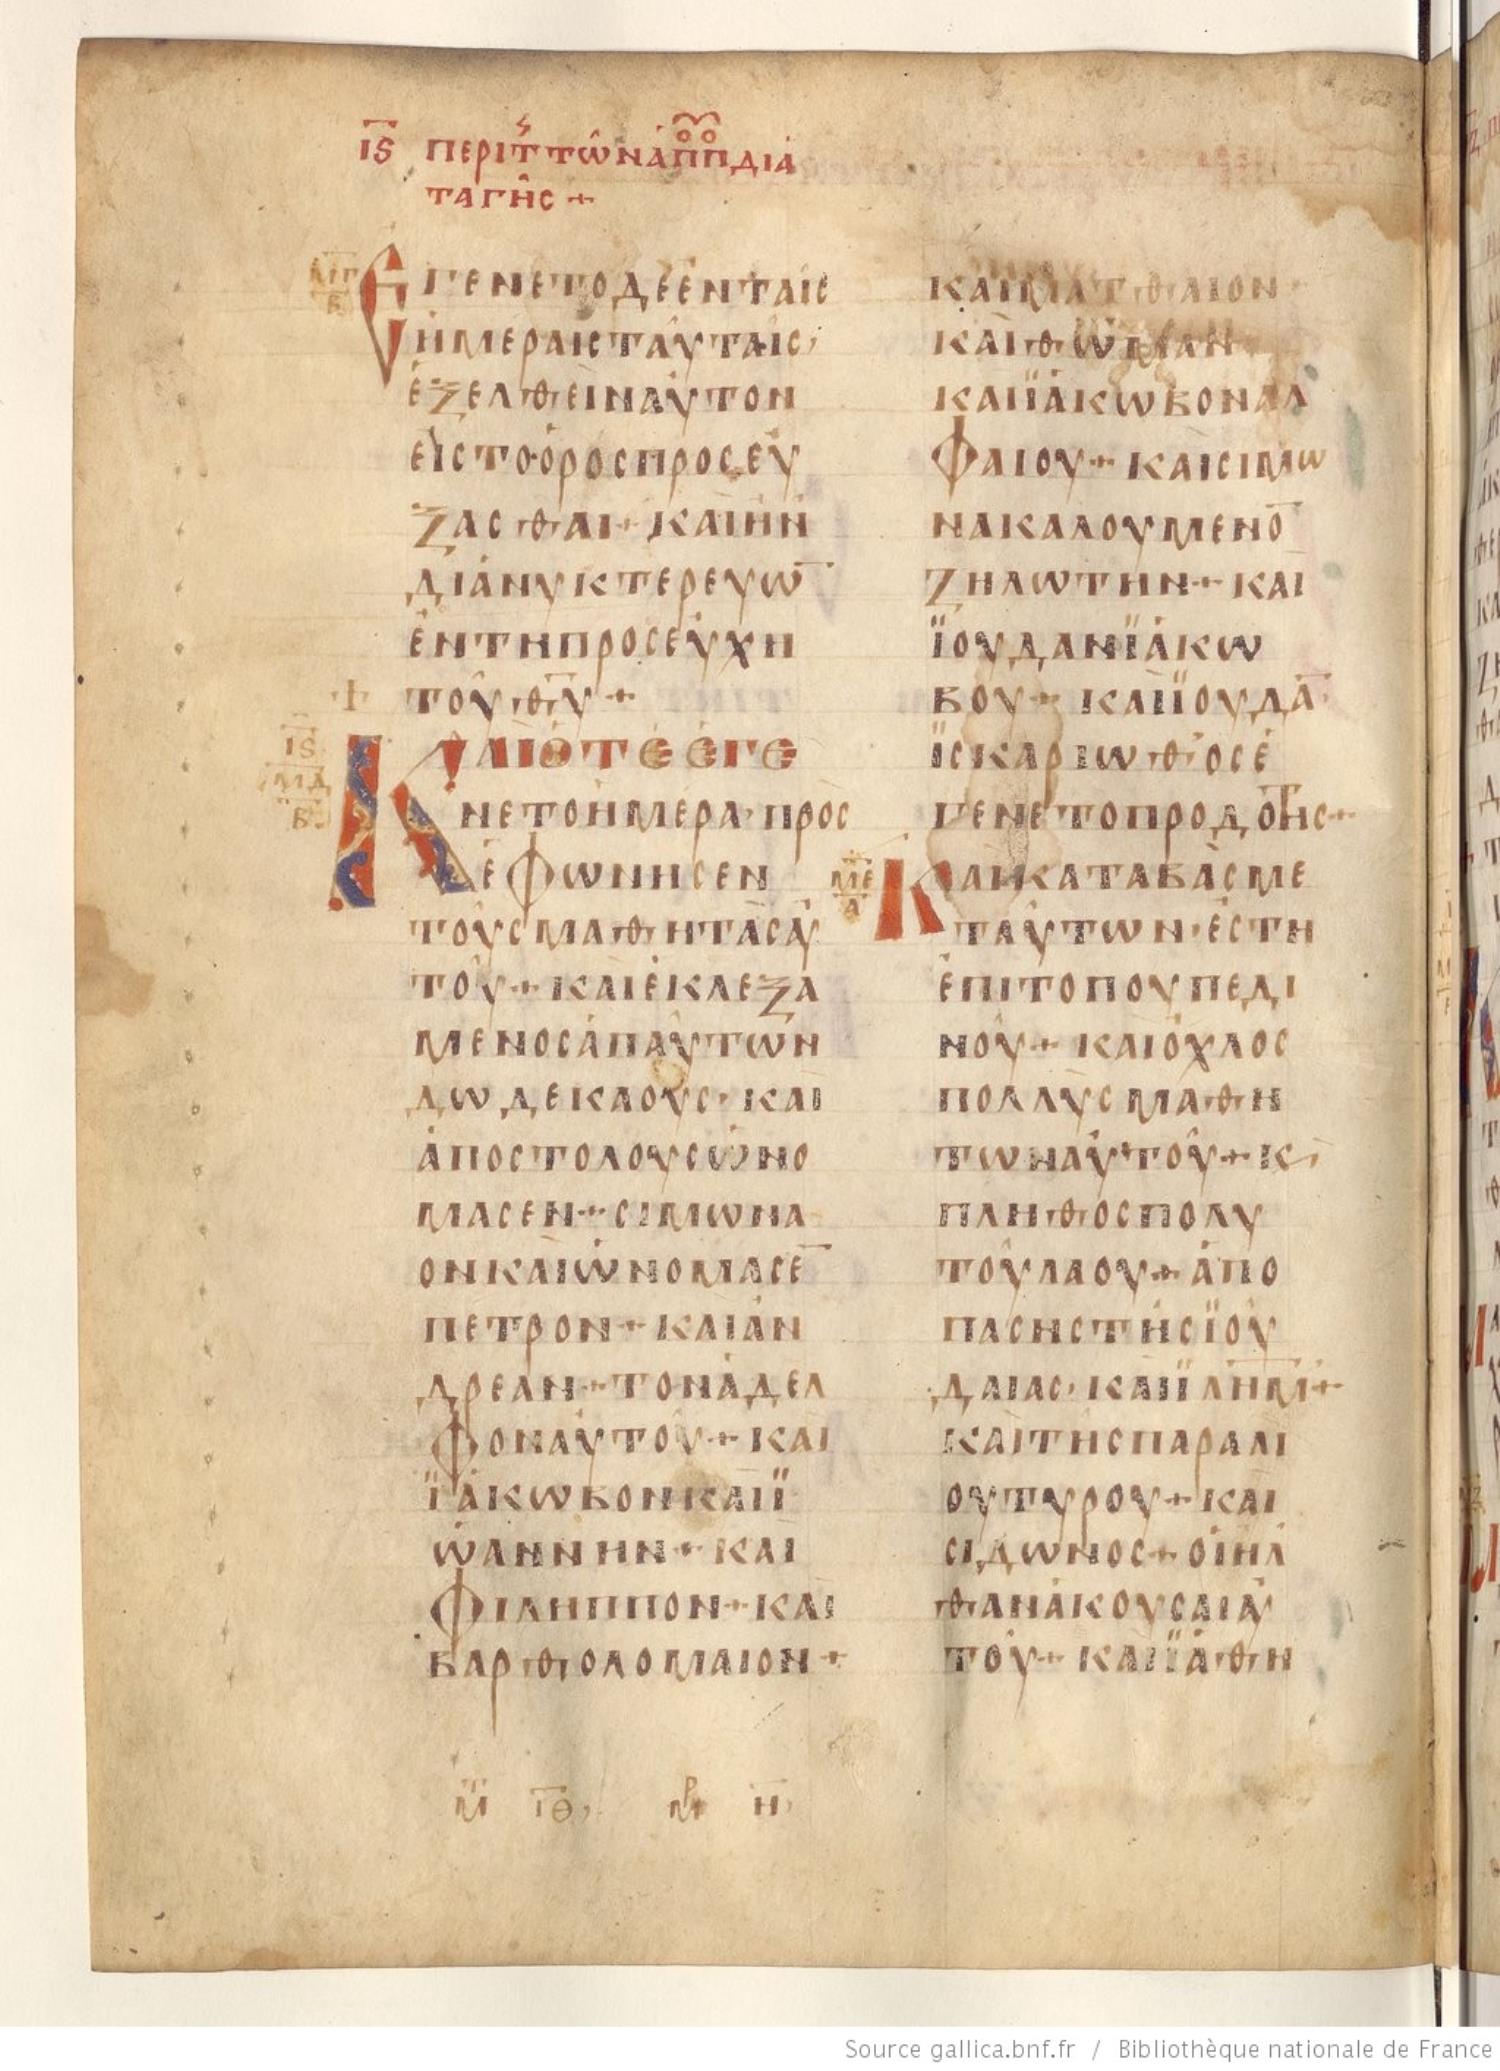 ΙϚ ΠΕΡΙ Τ ΤΩΝ ΑΠΠ ΔΙΑ
ΤΑΓΗΣ +
ΜΓ
Β
ΕΓΕΝΕΤΟ ΔΕ ΕΝ ΤΑΙϹ
ΗΜΕΡΑΙϹ ΤΑΥΤΑΙϹ,
ΕΞΕΛΘΕΙΝ ΑΥΤΟΝ
ΕΙϹ ΤΟ ΟΡΟϹ ΠΡΟϹΕΥ
ΞΑϹΘΑΙ + ΚΑΙ ΗΝ
ΔΙΑΝΥΚΤΕΡΕΥΩ̅
ΕΝ ΤΗ ΠΡΟϹΕΥΧΗ
ΤΟΥ Θ̅Υ̅ +
ΙϚ
ΜΔ
Β
ΚΑΙ ΟΤΕ ΕΓΕ
ΝΕΤΟ ΗΜΕΡΑ· ΠΡΟϹ
ΕΦΩΝΗϹΕΝ
ΤΟΥϹ ΜΑΘΗΤΑϹ ΑΥ
ΤΟΥ + ΚΑΙ ΕΚΛΕΞΑ
ΜΕΝΟϹ ΑΠ ΑΥΤΩΝ
ΔΩΔΕΚΑ ΟΥϹ· ΚΑΙ
ΑΠΟϹΤΟΛΟΥϹ ΩΝΟ
ΜΑϹΕΝ + ϹΙΜΩΝΑ
ΟΝ ΚΑΙ ΩΝΟΜΑϹΕ̅
ΠΕΤΡΟΝ + ΚΑΙ ΑΝ
ΔΡΕΑΝ + ΤΟΝ ΑΔΕΛ
ΦΟΝ ΑΥΤΟΥ + ΚΑΙ
ΪΑΚΩΒΟΝ ΚΑΙ Ϊ
ΩΑΝΝΗΝ + ΚΑΙ
ΦΙΛΗΠΠΟΝ + ΚΑΙ
ΒΑΡΘΟΛΟΜΑΙΟΝ +
ΚΑΙ ΜΑΤΘΑΙΟΝ·
ΚΑΙ ΘΩΜΑΝ
ΚΑΙ ΪΑΚΩΒΟΝ ΑΛ
ΦΑΙΟΥ + ΚΑΙ ϹΙΜΩ
ΝΑ ΚΑΛΟΥΜΕΝΟ̅
ΖΗΛΩΤΗΝ + ΚΑΙ
ΪΟΥΔΑΝ ΪΑΚΩ
ΒΟΥ + ΚΑΙ ΪΟΥΔΑ̅
ΪϹΚΑΡΙΩΘ ΟϹ Ε
ΓΕΝΕΤΟ ΠΡΟΔΟΤΗϹ +
ΜΕ
Α
ΚΑΙ ΚΑΤΑΒΑϹ ΜΕ
Τ ΑΥΤΩΝ· ΕϹΤΗ
ΕΠΙ ΤΟΠΟΥ ΠΕΔΙ
ΝΟΥ + ΚΑΙ ΟΧΛΟϹ
ΠΟΛΛΥϹ ΜΑΘΗ
ΤΩΝ ΑΥΤΟΥ + Κ,
ΠΛΗΘΟϹ ΠΟΛΥ
ΤΟΥ ΛΑΟΥ + ΑΠΟ
ΠΑϹΗϹ ΤΗϹ ΪΟΥ
ΔΑΙΑϹ· ΚΑΙ Ϊ̅Λ̅Η̅Μ̅ +
ΚΑΙ ΤΗϹ ΠΑΡΑΛΙ
ΟΥ ΤΥΡΟΥ + ΚΑΙ
ϹΙΔΩΝΟϹ + ΟΙ ΗΛ
ΘΑΝ ΑΚΟΥϹΑΙ ΑΥ
ΤΟΥ + ΚΑΙ ΪΑΘΗ
Source gallica.bnf.fr / Bibliothèque nationale de France